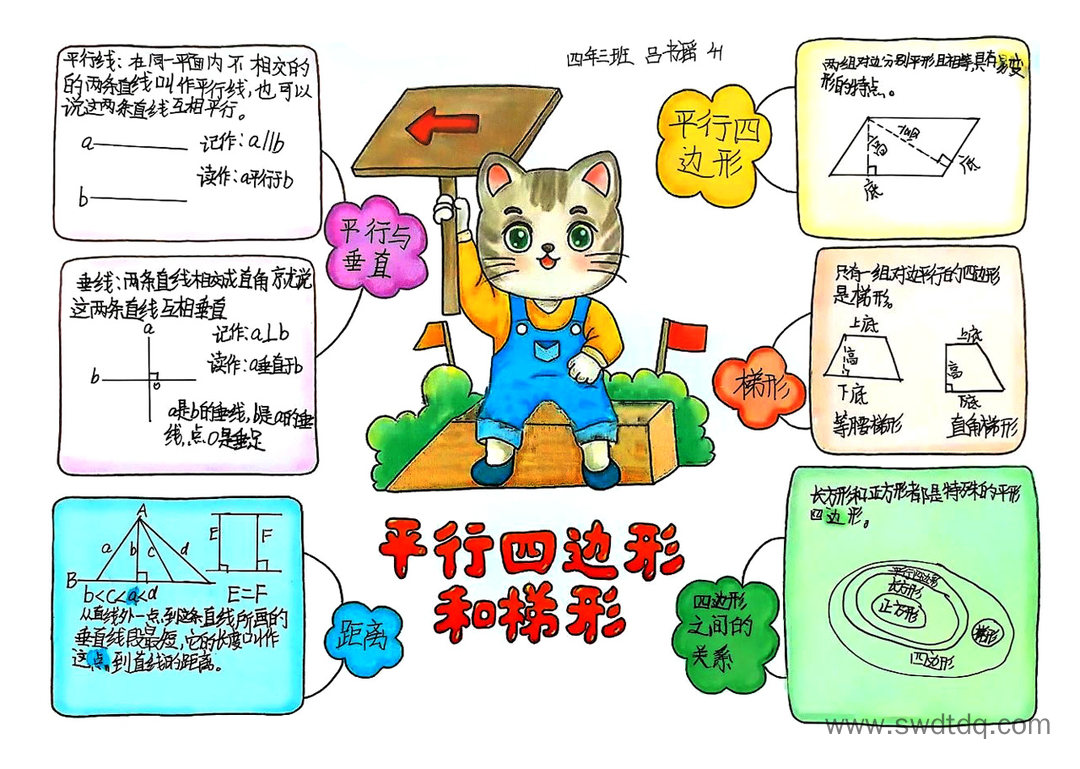 四年三班 吕书瑶 41
平行线：在同一平面内不相交的
的两条直线叫作平行线，也可以
说这两条直线互相平行。
a
记作：a∥b
读作：a平行于b
b
平行与
垂直
垂线：两条直线相交成直角京就说
这两条直线互相垂直
a
记作：a⊥b
读作：a垂直于b
b
o
a是b的垂线，b是a的垂
线，点O是垂足
A
a b c d
E F
B
b<c<a<d
E=F
从直线外一点到这条直线所画的
垂直线段最短，它的长度叫作
这点到直线的距离。
距离
平行四边形
和梯形
平行四
边形
两组对边分别平形且相等，具有易变
形的特点。
高
高
底
底
梯形
只有一组对边平行的四边形
是梯形。
上底
高
下底
等腰梯形
上底
高
下底
直角梯形
四边形
之间的
关系
长方形和正方形者都是特殊的平形
四边形。
平行四边形
长方形
正方形
梯形
四边形
www.swdtdq.com